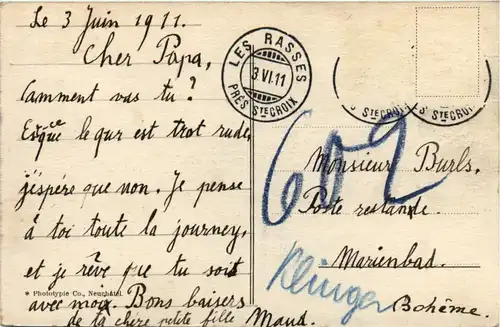 Le 3 Juin 1911.
Cher Papa,
Comment vas tu?
Esqce que le qur est trot rude,
j'éspére que non. Je pense
à toi toute la journey,
et je rêve que tu soit
avec moi. Bons baisers
de ta chère petite fille
Maud.
* Phototypie Co., Neuchâtel.
LES RASSES
3 VI. 11
PRÈS STE CROIX
STE CROIX
S STE CROIX
602
Monsieur Burls.
Poste restande.
Marienbad.
Klinger
Bohême.